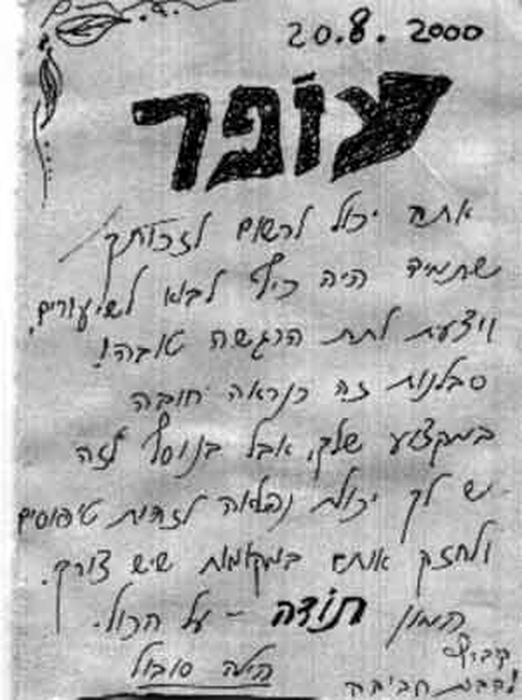 20.8.2000
עופר
אתה יכול לרשום לזכותך
שתמיד היה כיף לבוא לשיעורים,
וידעת לתת הרגשה טובה!
סבלנות זה כנראה חובה
במקצוע שלך, אבל בנוסף לזה
יש לך יכולת נפלאה לזהות טיפוסים
ולחזק אותם במקומות שיש צורך.
המון תודה - על הכול.
הילה סובול
קיבוץ
גבעת חביבה